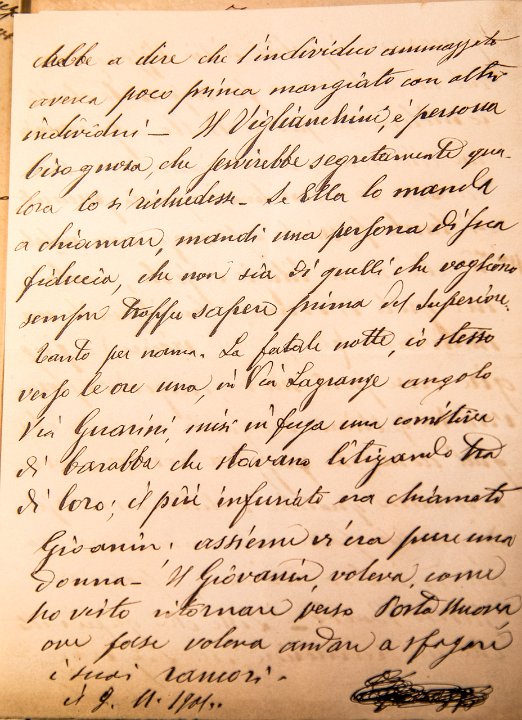 ebbe a dire che l'individuo ammazzato
aveva poco prima mangiato con altri
individui — Il Viglianchini, è persona
bisognosa, che servirebbe segretamente qua-
lora lo si richiedesse — Se Ella lo manda
a chiamare, mandi una persona di sua
fiducia, che non sia di quelli che vogliono
sempre troppo sapere prima del Superiore.
tanto per norma. La fatale notte, io stesso
verso le ore una, in Via Lagrange angolo
Via Guarini, misi in fuga una comitiva
di barabba che stavano litigando tra
di loro; il più infuriato era chiamato
Gioanin. assieme vi era pure una
donna — Il Giovanin, voleva, come
ho visto ritornare verso Porta Nuova
ove forse voleva andare a sfogare
i suoi rancori.
il 9. 1901..